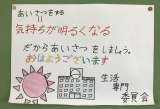 あいさつをすると
気持ちが明るくなる
だからあいさつをしましょう。
おはようございます
生活
専門
委員会